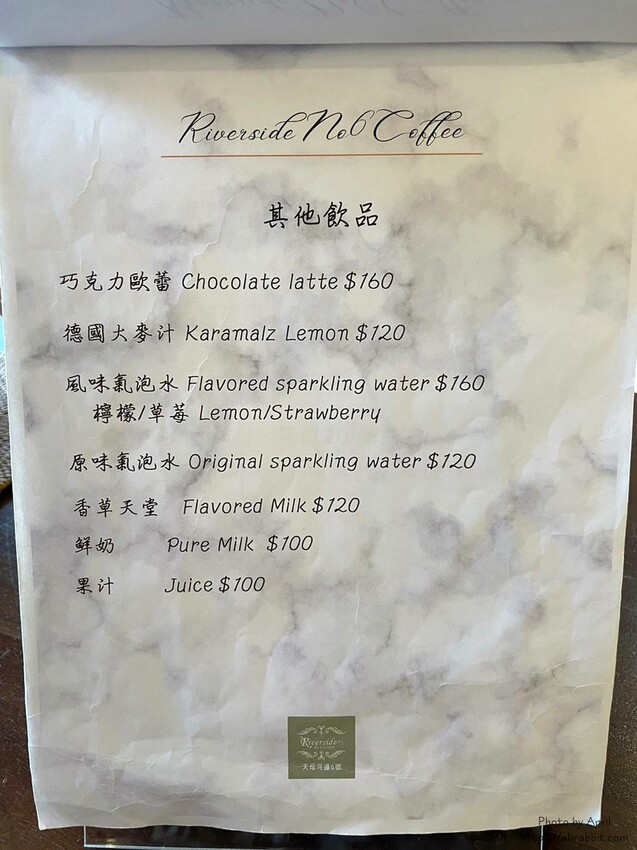 Riverside No6 Coffee
其他飲品
巧克力歐蕾 Chocolate latte $160
德國大麥汁 Karamalz Lemon $120
風味氣泡水 Flavored sparkling water $160
檸檬/草莓 Lemon/Strawberry
原味氣泡水 Original sparkling water $120
香草天堂 Flavored Milk $120
鮮奶 Pure Milk $100
果汁 Juice $100
Riverside
天母河邊6號
Photo by April
abrabbit.com